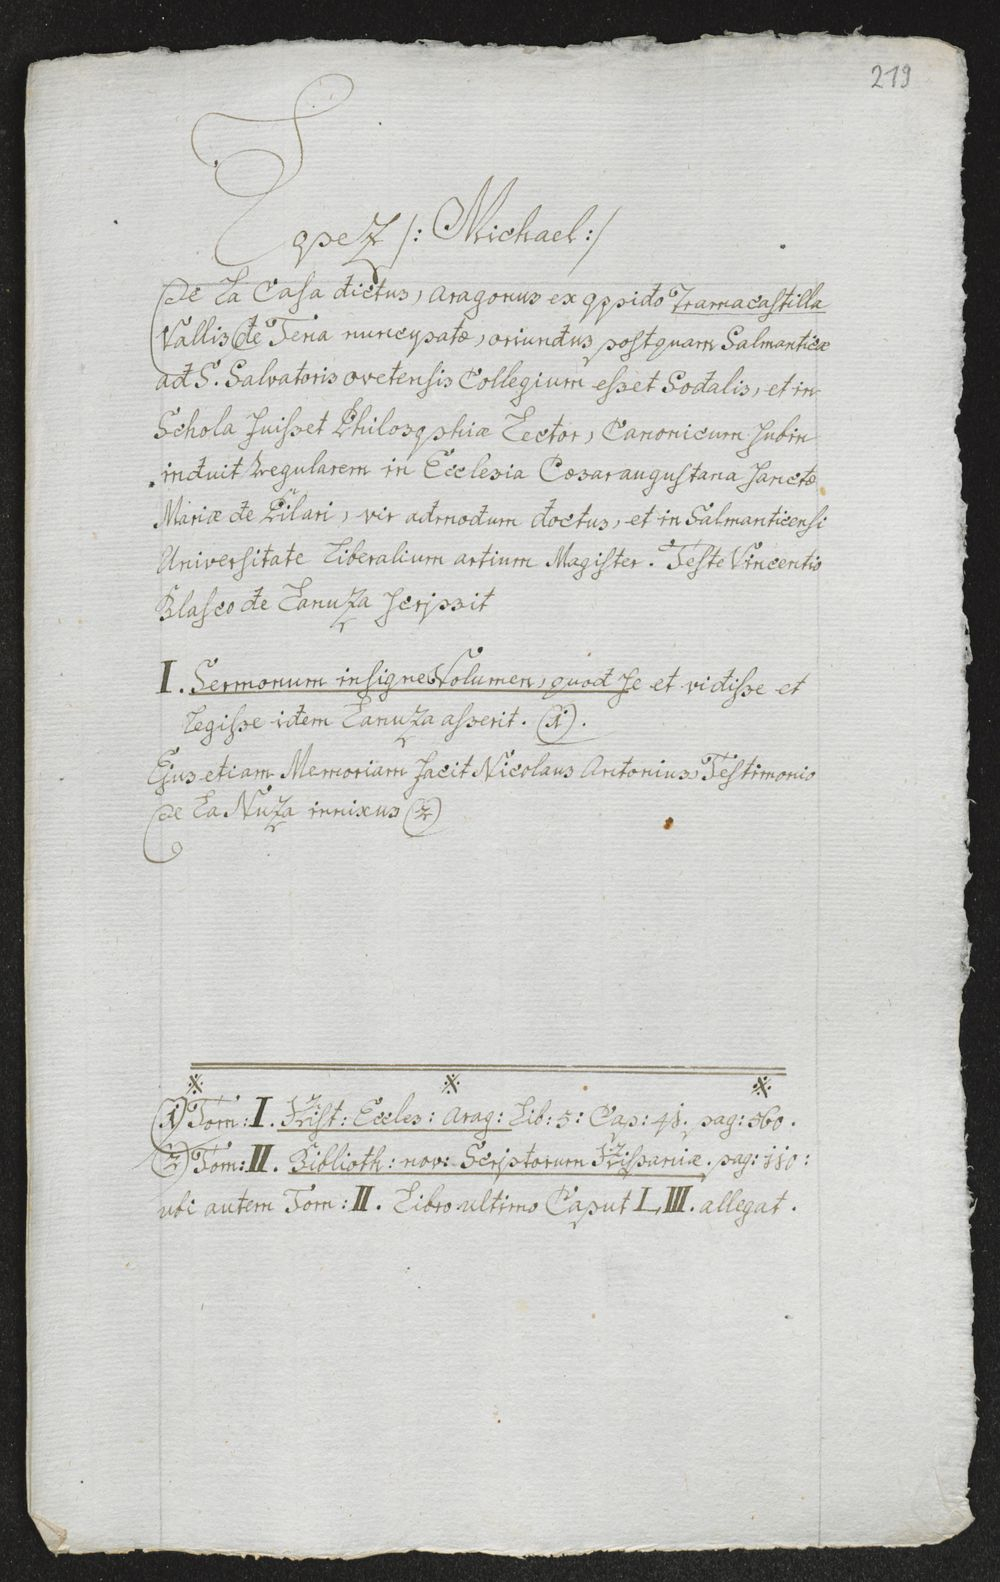 219
Lopez /: Michael :/
De La Casa dictus, Aragonus ex oppido Tramacastilla
Vallis de Tena nuncupatæ, oriundus, postquam Salmanticæ
ad S. Salvatoris ovetensis Collegium esset Sodalis, et in
Schola fuisset Philosophiæ Lector, Canonicum subin
induit Regularem in Ecclesia Cæsaraugustana sanctæ
Mariæ de Pilari, vir admodum doctus, et in Salmanticensi
Universitate Liberalium artium Magister. Teste Vincentio
Blasco de Lanuza scripsit
I. Sermonum insigne Volumen, quod se et vidisse et
legisse idem Lanuza asserit. (1).
Ejus etiam Memoriam facit Nicolaus Antonius, Testimonio
De La Nuza innixus (2)
(1) Tom: I. Hist: Eccles: Arag: Lib: 5: Cap: 41. pag: 560.
(2) Tom: II. Biblioth: nov: Scriptorum Hispaniæ. pag: 110:
ubi autem Tom: II. Libro ultimo Caput LIII. allegat.